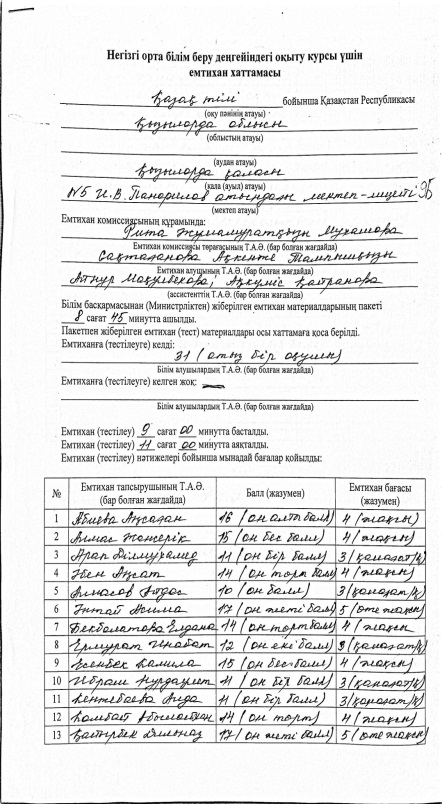 Негізгі орта білім беру деңгейіндегі оқыту курсы үшін
емтихан хаттамасы
Қазақ тілі бойынша Қазақстан Республикасы
(оқу пәнінің атауы)
Қызылорда облысы
(облыстың атауы)
(аудан атауы)
Қызылорда қаласы
(қала (ауыл) атауы)
№5 И.В. Панфилов атындағы мектеп-лицейі
(мектеп атауы)
Емтихан комиссиясының құрамында:
Рита Жұмамұратқызы Мұхашова
Емтихан комиссиясы төрағасының Т.А.Ә. (бар болған жағдайда)
Сақтағанова Ақкенже
Емтихан алушының Т.А.Ә. (бар болған жағдайда)
Айнұр Ақкүміс
(ассистенттің Т.А.Ә. (бар болған жағдайда)
Білім басқармасынан (Министрліктен) жіберілген емтихан материалдарының пакеті
8 сағат 45 минутта ашылды.
Пакетпен жіберілген емтихан (тест) материалдары осы хаттамаға қоса берілді.
Емтиханға (тестілеуге) келді:
31 (отыз бір оқушы)
Білім алушылардың Т.А.Ә. (бар болған жағдайда)
Емтиханға (тестілеуге) келген жоқ: —
Білім алушылардың Т.А.Ә. (бар болған жағдайда)
Емтихан (тестілеу) 9 сағат 00 минутта басталды.
Емтихан (тестілеу) 11 сағат 00 минутта аяқталды.
Емтихан (тестілеу) нәтижелері бойынша мынадай бағалар қойылды:
№ Емтихан тапсырушының Т.А.Ә. (бар болған жағдайда) Балл (жазумен) Емтихан бағасы (жазумен)
1 Абиева Ақсазан 16 (он алты балл) 4 (жақсы)
2 Алмас Жәнерік 15 (он бес балл) 4 (жақсы)
3 Арап Дінмұхамед 11 (он бір балл) 3 (қанағат/қ)
4 Әбен Ақсат 14 (он төрт балл) 4 (жақсы)
5 Алмасов 10 (он балл) 3 (қанағат/қ)
6 Ынтай Асима 17 (он жеті балл) 5 (өте жақсы)
7 Бекболатова Елдана 14 (он төрт балл) 4 (жақсы
8 Ермұрат Инабат 12 (он екі балл) 3 (қанағат/қ)
9 Есенбек Камила 15 (он бес балл) 4 (жақсы)
10 Ибраим Нұрдәулет 11 (он бір балл) 3 (қанағат/қ)
11 Кентебаева Аида 11 (он бір балл) 3 (қанағат/қ)
12 Қамбат 14 (он төрт) 4 (жақсы)
13 Қайырбек Дильназ 17 (он жеті балл) 5 (өте жақсы)